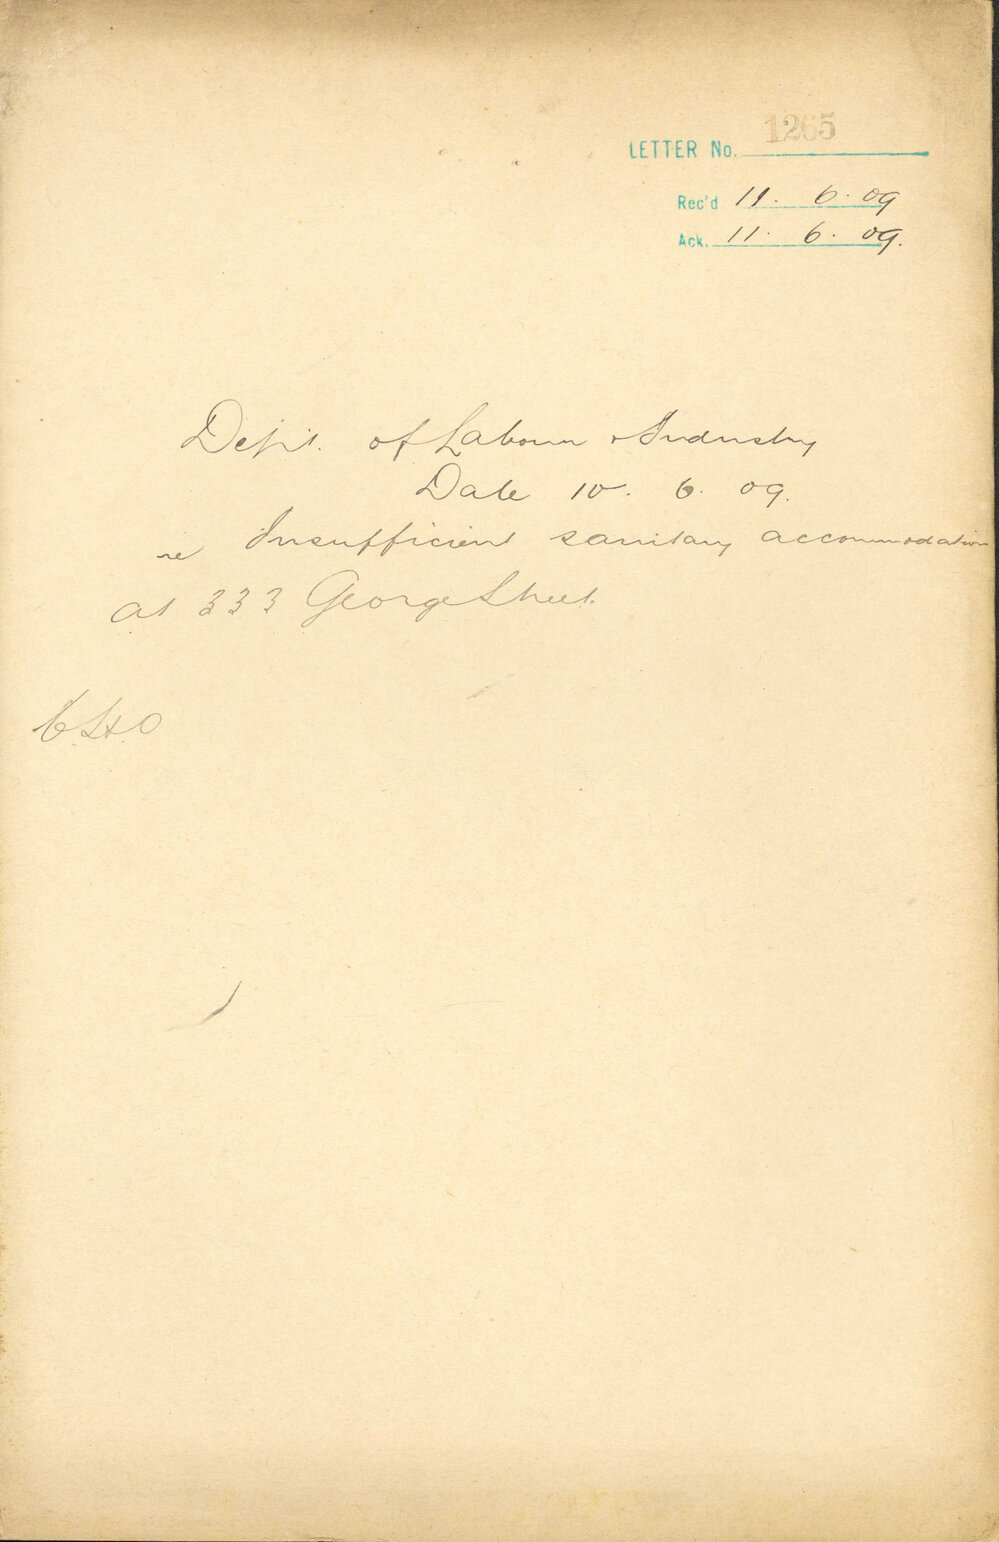 LETTER No. 1265
Rec'd 11. 6. 09
Ack. 11. 6. 09.
Dept. of Labour & Industry
Date 10. 6. 09.
re Insufficient sanitary accommodation
at 333 George Street.